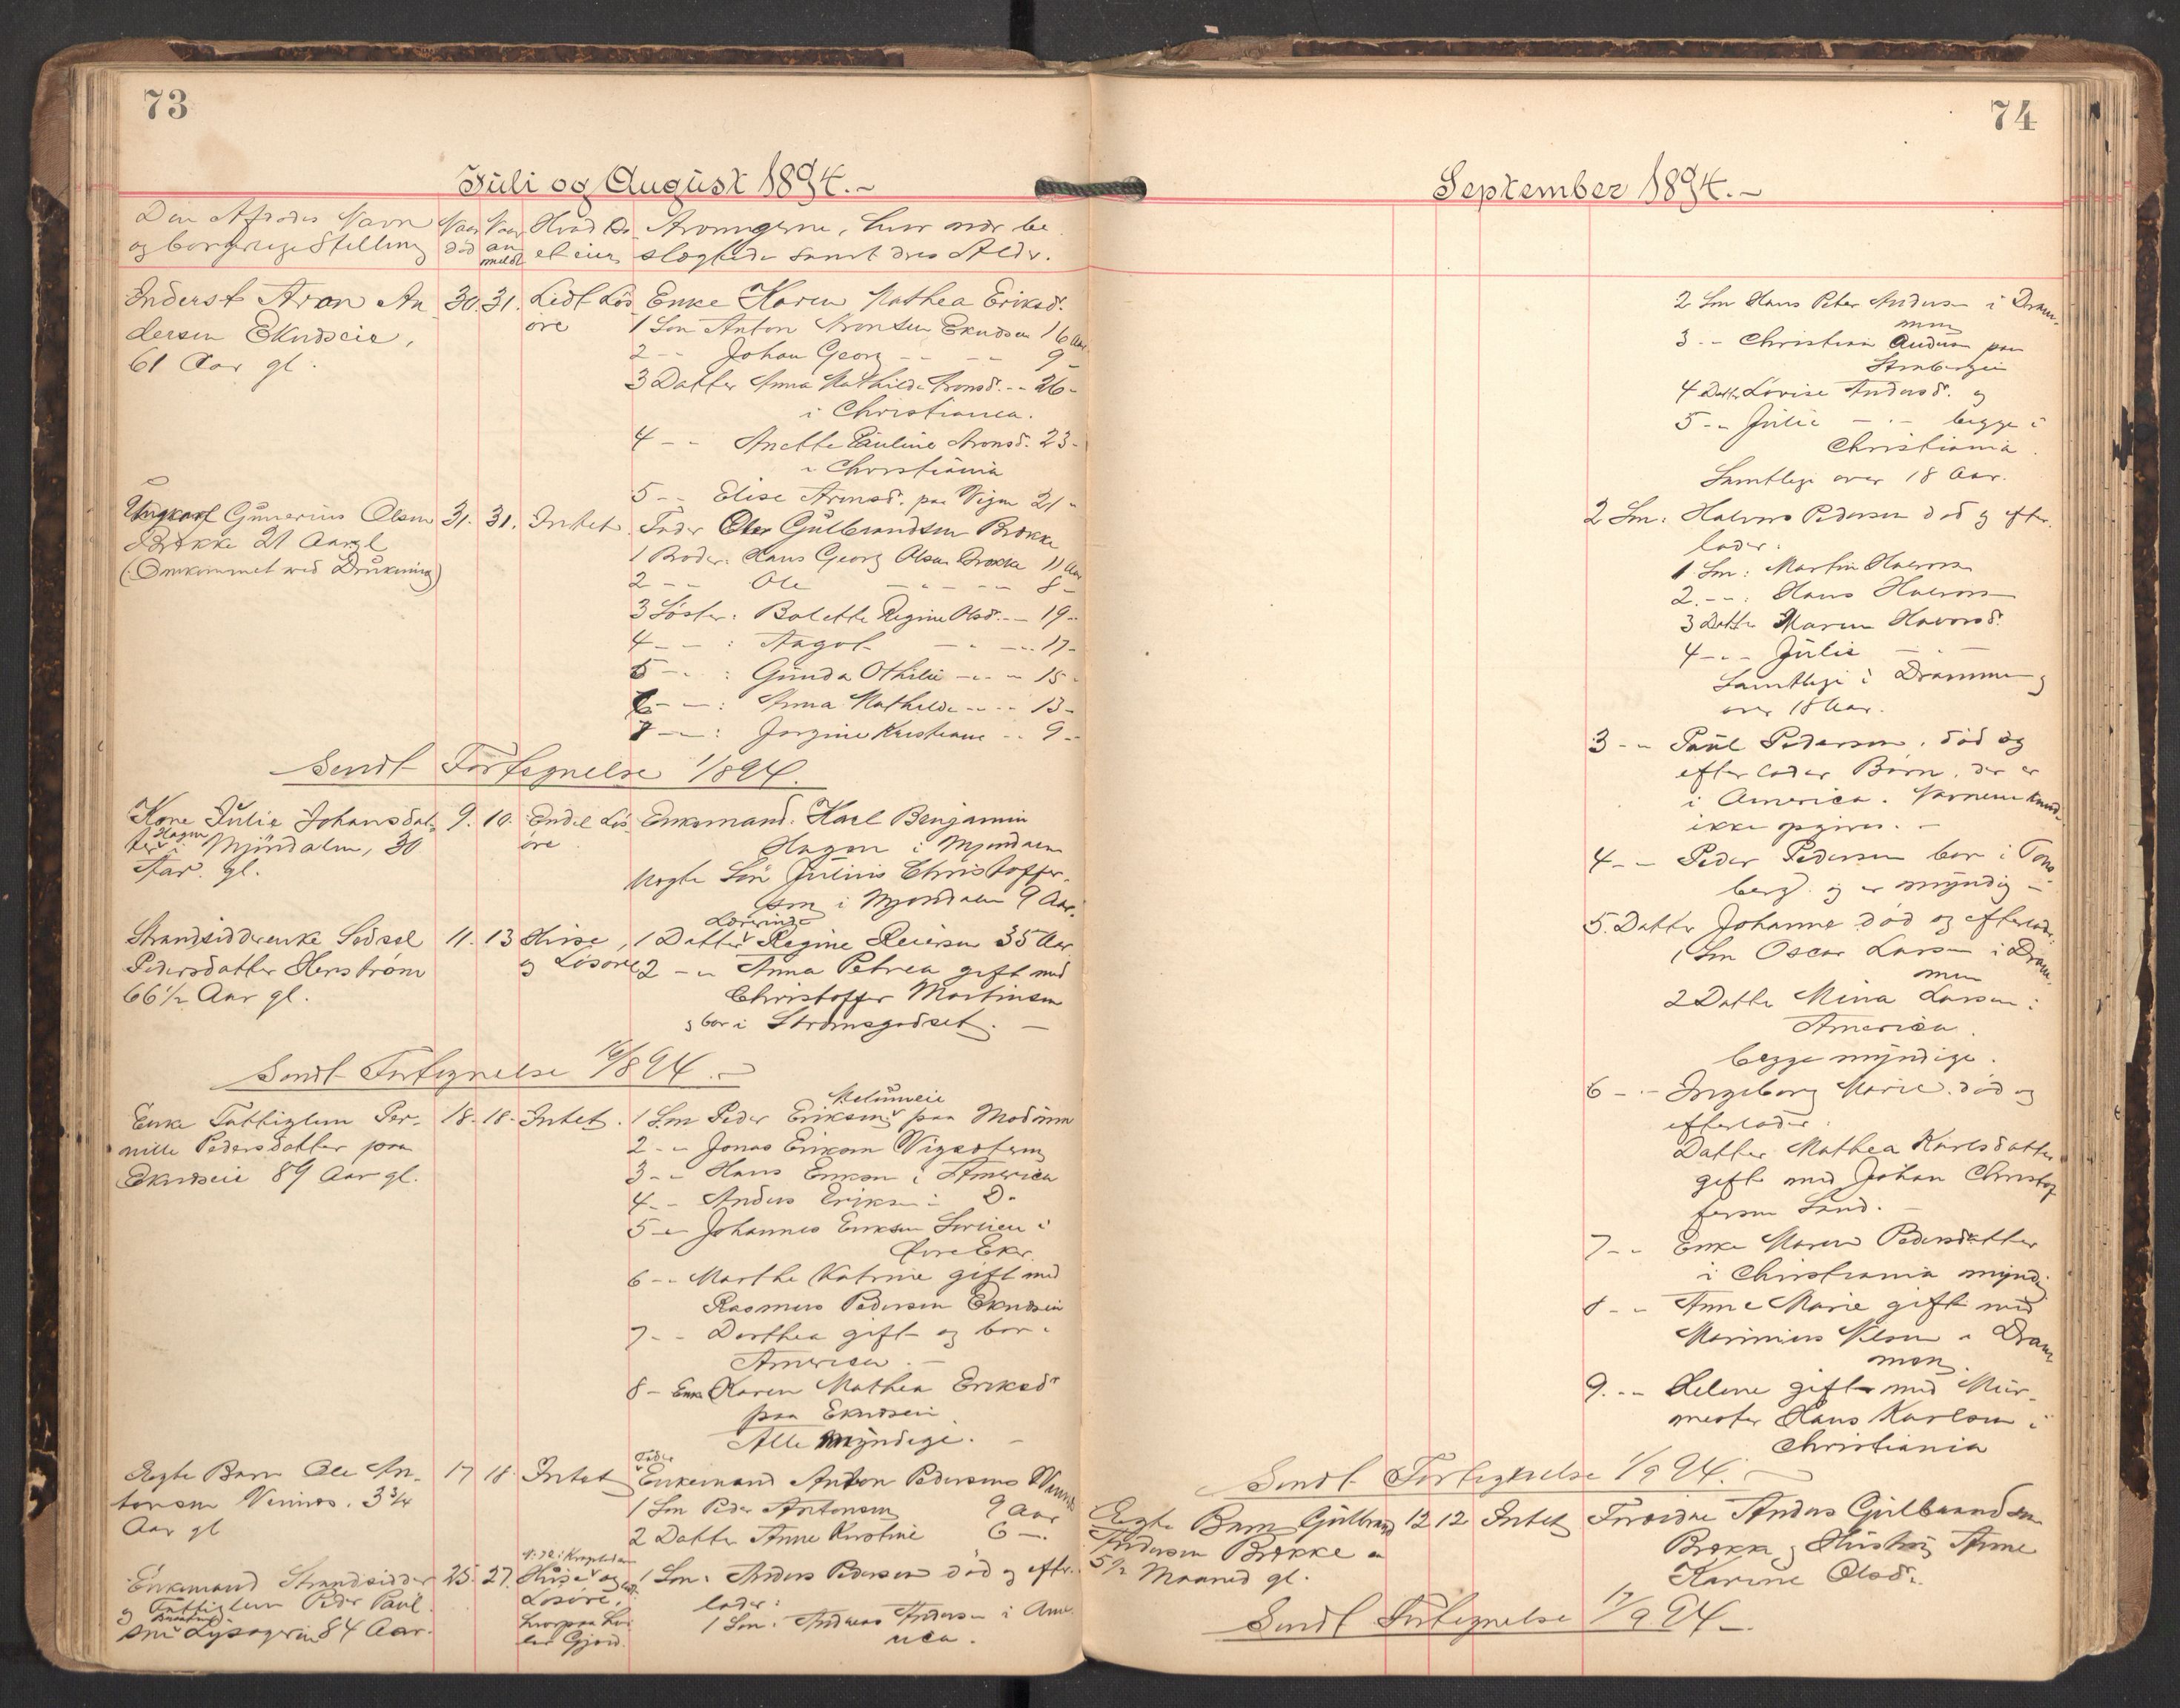 73
Juli og August 1894.-
Den Afdødes Navn og borgerlige Stilling
Naar død
Naar anmeldt
Hvad
Arvingerne, hvor nær beslægtede samt deres Alder.
Inderst Aron An
dersen Eknæseie,
61 Aar gl.
30. 31. Lidt Løs
øre
Enke Karen Mathea Eriksd.
1 Søn Anton Aronsen Eknæsen 16 Aar
2 - - Johan Georg - - 9 -
3 Datter Anna Mathilde Aronsd. - - 26 -
i Christiania.
4 - - Anette Pauline Aronsd. 23 -
i Christiania
5 - - Elise Aronsd. paa 21 -
Ungkarl Gunerius Olsen
Brække 21 Aar gl
(Omkommet ved Drukning)
31. 31. Intet
Fader Ole Gulbrandsen Brække
1 Broder: Hans Georg Olsen Brække 11 Aar
2 - - Ole - - - 8 -
3 Søster: Bolette Regine Olsd. - - 19 -
4 - - : Aagot - - - 17 -
5 - - : Gunda Othilie - - - 15 -
6 - - : Anna Mathilde - - - 13 -
7 - - : Jorgine Kristiane - - 9 -
Sendt Fortegnelse 1/8 94.
Kone Julie Johansdat
ter Hagen i Mjøndalen, 30
Aar gl.
9. 10. Endel Løs
øre
Enkemand Karl Benjamin
Hagen i Mjøndalen
Søn Julius Christoffer
sen i Mjøndalen 9 Aar.
Strandsidderenke Sidsel
Pedersdatter Herstrøm
66 1/2 Aar gl.
11. 13 Huse,
og Løsøre
1 Datter Lærerinde Regine Reiersen 35 Aar
2 - - Anna Petrea gift med
Christoffer Martinsen
og bor i Strømsgodset. -
Sendt Fortegnelse 16/8 94. -
Enke Fattiglem Per-
nille Pedersdatter paa
Eknæseie 89 Aar gl.
18. 18. Intet.
1 Søn Peder Eriksen paa Modum
2 - - Jonas Eriksen
3 - - Hans Eriksen i America
4 - - Anders Eriksen i Do
5 - - Johannes Eriksen i
Øvre Eker.
6 - - Marthe Katrine gift med
Rasmus Pedersen Eknæseie
7 - - Dorthea gift og bor i
America. -
8 - Enke Karen Mathea Eriksdr
paa Eknæseie
Alle myndige. -
Ægte Barn Ole An-
tonsen 3 3/4
Aar gl
17 18 Intet
Fader
Enkemand Anton Pedersen
1 Søn Peder Antonsen 9 Aar
2 Datter Anne Kirstine 6 -
Enkemand Strandsidder
og Fattiglem Peder Paul
sen 84 Aar.
25. 27. Huse og
Løsøre,
1 Søn: Anders Pedersen død og efter-
lader:
1 Søn: Andreas Andersen i Ame-
rica.
74
September 1894.-
2 Søn Hans Peter Andersen i Dram-
men
3 - - Christian Andersen paa
4 Datter Lovise Andersd. og
5 - - Julie - - begge i
Christiania.
Samtlige over 18 Aar.
2 Søn: Halvor Pedersen død og efter-
lader:
1 Søn: Martin Halvorsen
2. - - : Hans Halvorsen
3 Datter Maren Halvorsd.
4 - - Julie - -
Samtlige i Drammen og
over 18 Aar.
3 - - Paul Pedersen, død og
efterlader Børn, der er
i America. Navnene kunde
ikke opgives. -
4 - - Peder Pedersen bor i Tøns-
berg og er myndig -
5. Datter Johanne død og efterlader:
1 Søn Oscar Larsen i Dram-
men
2 Datter Mina Larsen i
America.
begge myndige.
6 - - Ingeborg Marie død og
efterlader:
Datter Mathea Karlsdatter
gift med Johan Christof
fersen Sand. -
7 - - Enke Maren Pedersdatter
i Christiania myndig
8 - - Anne Marie gift med
Marinius Nilsen i Dram
men.
9. - - Helene gift med Mur-
mester Hans Karlsen i
Christiania
Sendt Fortegnelse 1/9 94.
Ægte Barn Gulbrand
Andersen Brække
5 1/2 Maaned gl.
12 12 Intet
Forældre Anders Gulbrandsen
Brække og Hustru Anne
Karine Olsdr.
Sendt Fortegnelse 17/9 94.